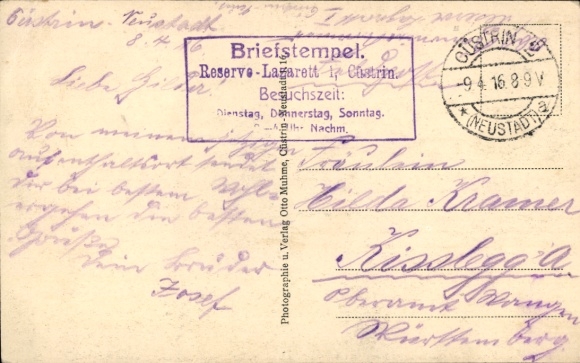 Cüstrin-Neustadt
8. 4. 16
Liebe Hilda!
Von meinem jetzigen
aufenthaltsort sendet
dir bei bestem Wohl-
ergehen die besten
Grüße
dein Bruder
Josef
Briefstempel.
Reserve-Lazarett I, Cüstrin.
Besuchszeit:
Dienstag, Donnerstag, Sonntag.
Nachm.
CÜSTRIN
-9.4.16.8-9V
* (NEUSTADT) a
Photographie u. Verlag Otto Muhme, Cüstrin-Neustadt.
Fräulein
Hilda Kramer
Kisslegg
Oberamt Wangen
Württemberg.